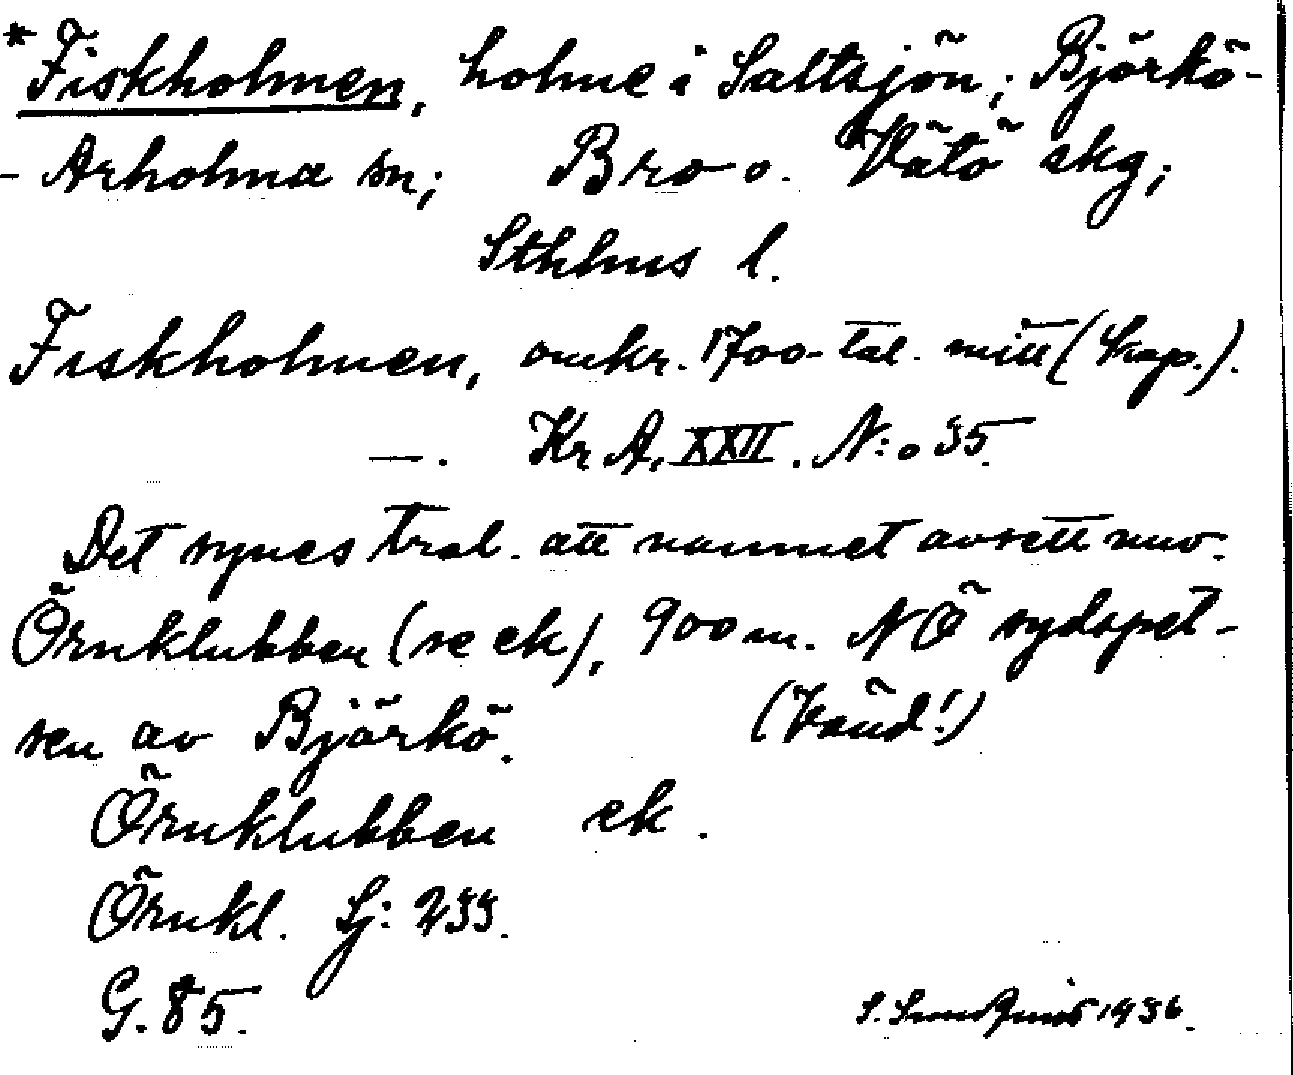 *Fiskholmen, holme i Saltsjön; Björkö-
- Arholma sn; Bro o. Vätö skg;
Sthlms l.
Fiskholmen, omkr. 1700-tal. mitt (Kop.).
—. Kr A, XXII. N:o 35.
Det synes trol. att namnet avsett nuv.
Örnklubben (se ek), 900 m. NÖ sydspet-
sen av Björkö. (Vänd!)
Örnklubben ek.
Örnkl. Sj: 233.
G. 85.
S. 1936.